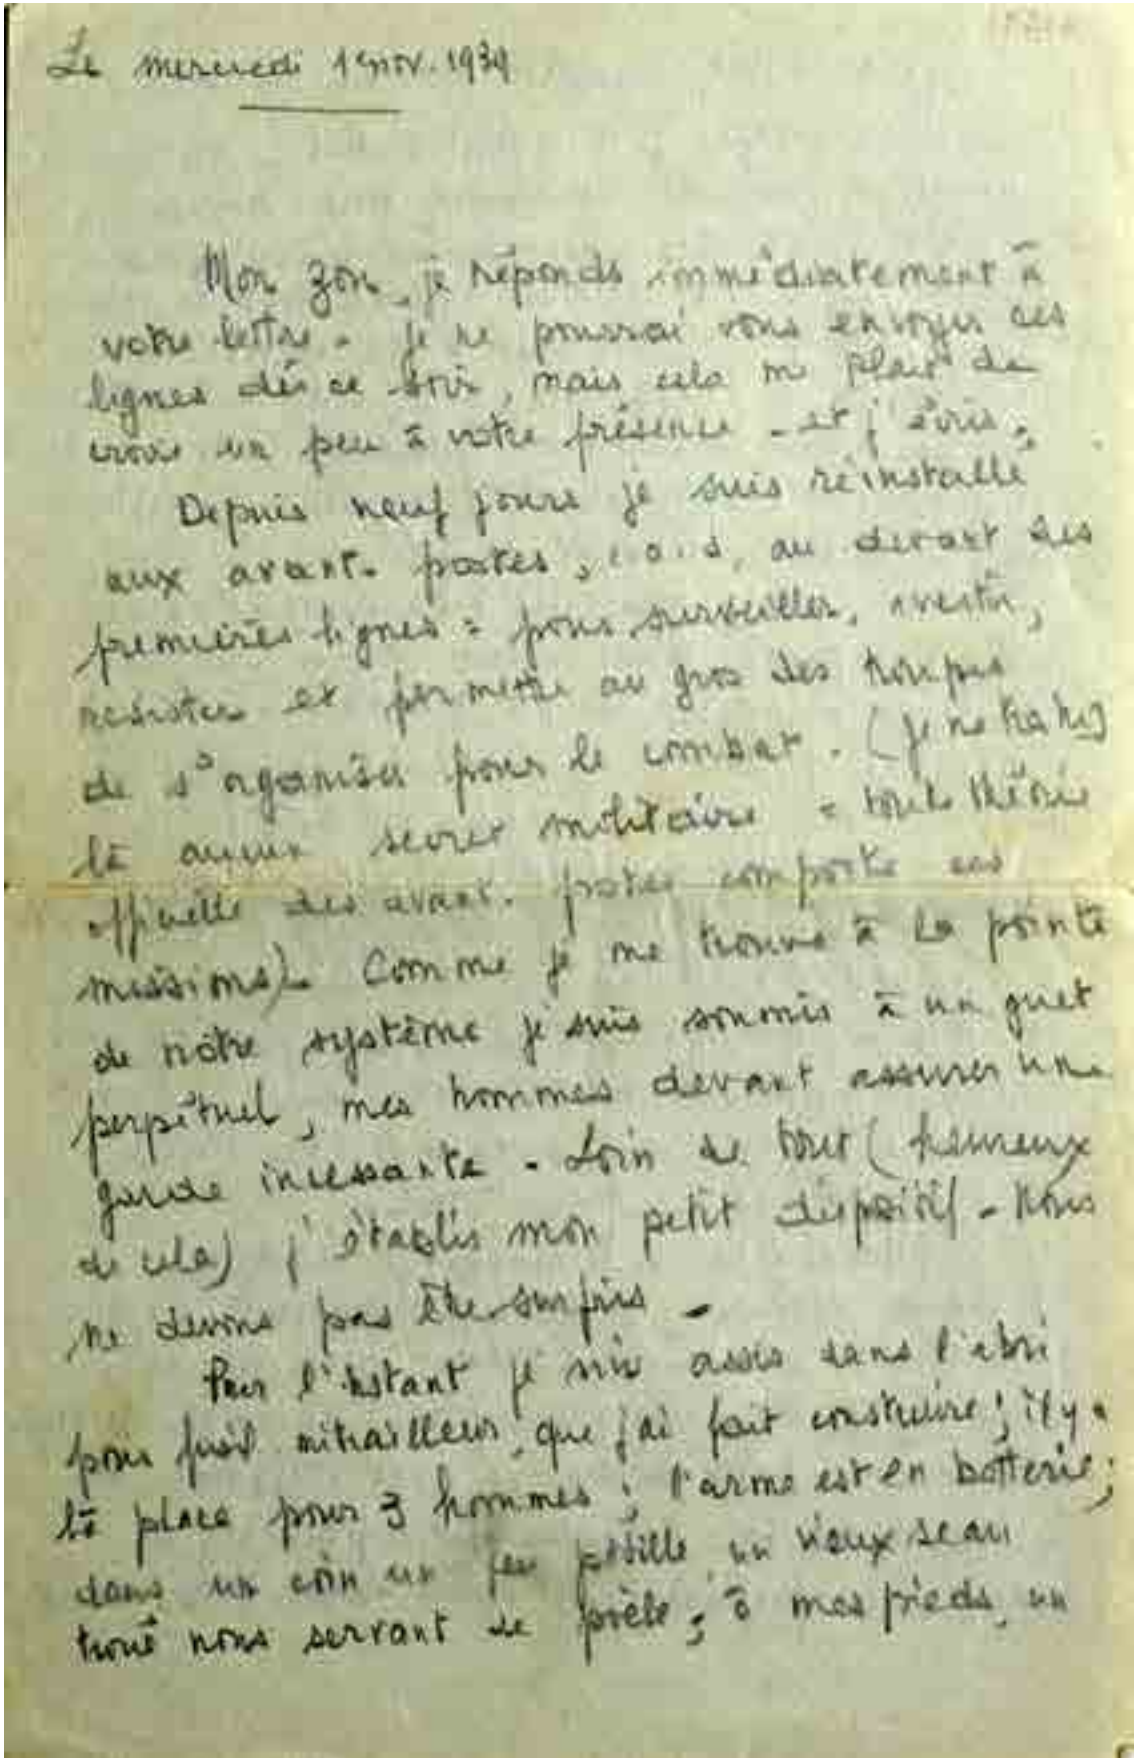 Le mercredi 1er nov. 1939
Mon zon, je réponds immédiatement à
votre lettre. Je ne pourrai vous envoyer ces
lignes dès ce soir, mais cela me plait de
croire un peu à votre présence - et j'écris.
Depuis neuf jours je suis réinstallé
aux avant-postes, c.à.d. au devant des
premières lignes : pour surveiller, avertir,
résister et permettre au gros des troupes
de s'organiser pour le combat. (je ne trahis
là aucun secret militaire = toute théorie
officielle des avant-postes comporte ces
missions). Comme je me trouve à la pointe
de notre système je suis soumis à un guet
perpétuel, mes hommes devant assurer une
garde incessante. Loin de tout (heureux
de cela) j'établis mon petit dispositif. Nous
ne devons pas être surpris.
Pour l'instant je suis assis dans l'abri
pour fusil mitrailleur, que j'ai fait construire ; il y a
là place pour 3 hommes ; l'arme est en batterie ;
dans un coin un feu pétille, un vieux seau
troué nous servant de poêle ; à mes pieds, un